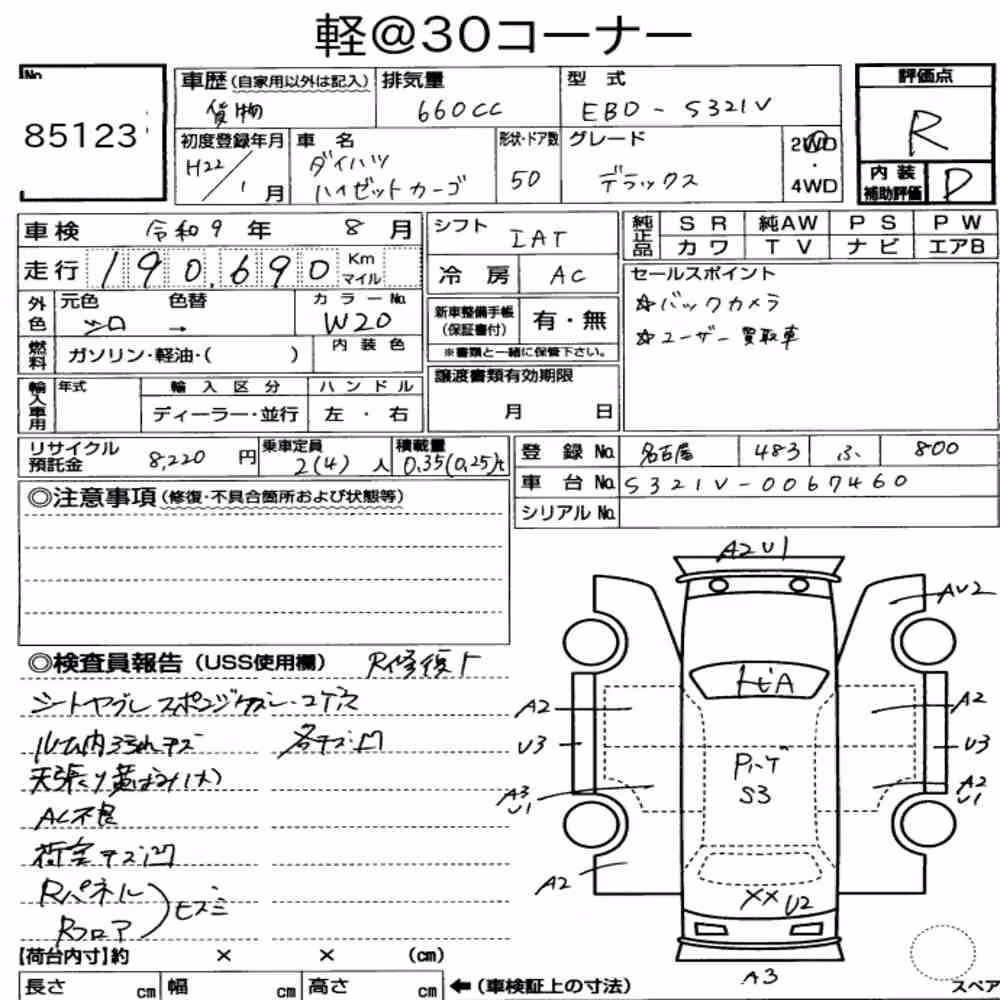 軽@30コーナー
No.
85123
車歴(自家用以外は記入)
貨物
排気量
660cc
型式
EBD-S321V
評価点
R
初度登録年月
H22/1月
車名
ダイハツ
ハイゼットカーゴ
形状・ドア数
5D
グレード
デラックス
2WD
・
4WD
内装
補助評価
D
車検 令和9年 8月
走行 190,690 Km マイル
外色
元色
シロ
色替
→
カラーNo.
W20
燃料
ガソリン・軽油・( )
内装色
輸入車用
年式
輸入区分
ディーラー・並行
ハンドル
左・右
シフト
IAT
冷房
AC
新車整備手帳
(保証書付)
有・無
※書類と一緒に保管下さい。
譲渡書類有効期限
月 日
純正品
SR 純AW PS PW
カワ TV ナビ エアB
セールスポイント
☆バックカメラ
☆ユーザー買取車
リサイクル
預託金
8,220円
乗車定員
2(4)人
積載量
0.35(0.25)t
登録No. 名古屋 483 ふ 800
車台No. S321V-0067460
シリアルNo.
◎注意事項(修復・不具合箇所および状態等)
◎検査員報告(USS使用欄) R修復ケ
シートヤブレ スポンジケズレ・コゲ穴
ルーム内ヨゴレキズ 各キズ凹
天張り黄ばみ(大)
AC不良
荷室キズ凹
Rパネル
Rフロア
ヒズミ
【荷台内寸】約 × × (cm)
長さ cm 幅 cm 高さ cm ←(車検証上の寸法)
A2U1
AU2
トビA
A2
A2
U3
U3
P.ハゲ
S3
A3
U1
A2
U1
A2
XX U2
A3
スペア